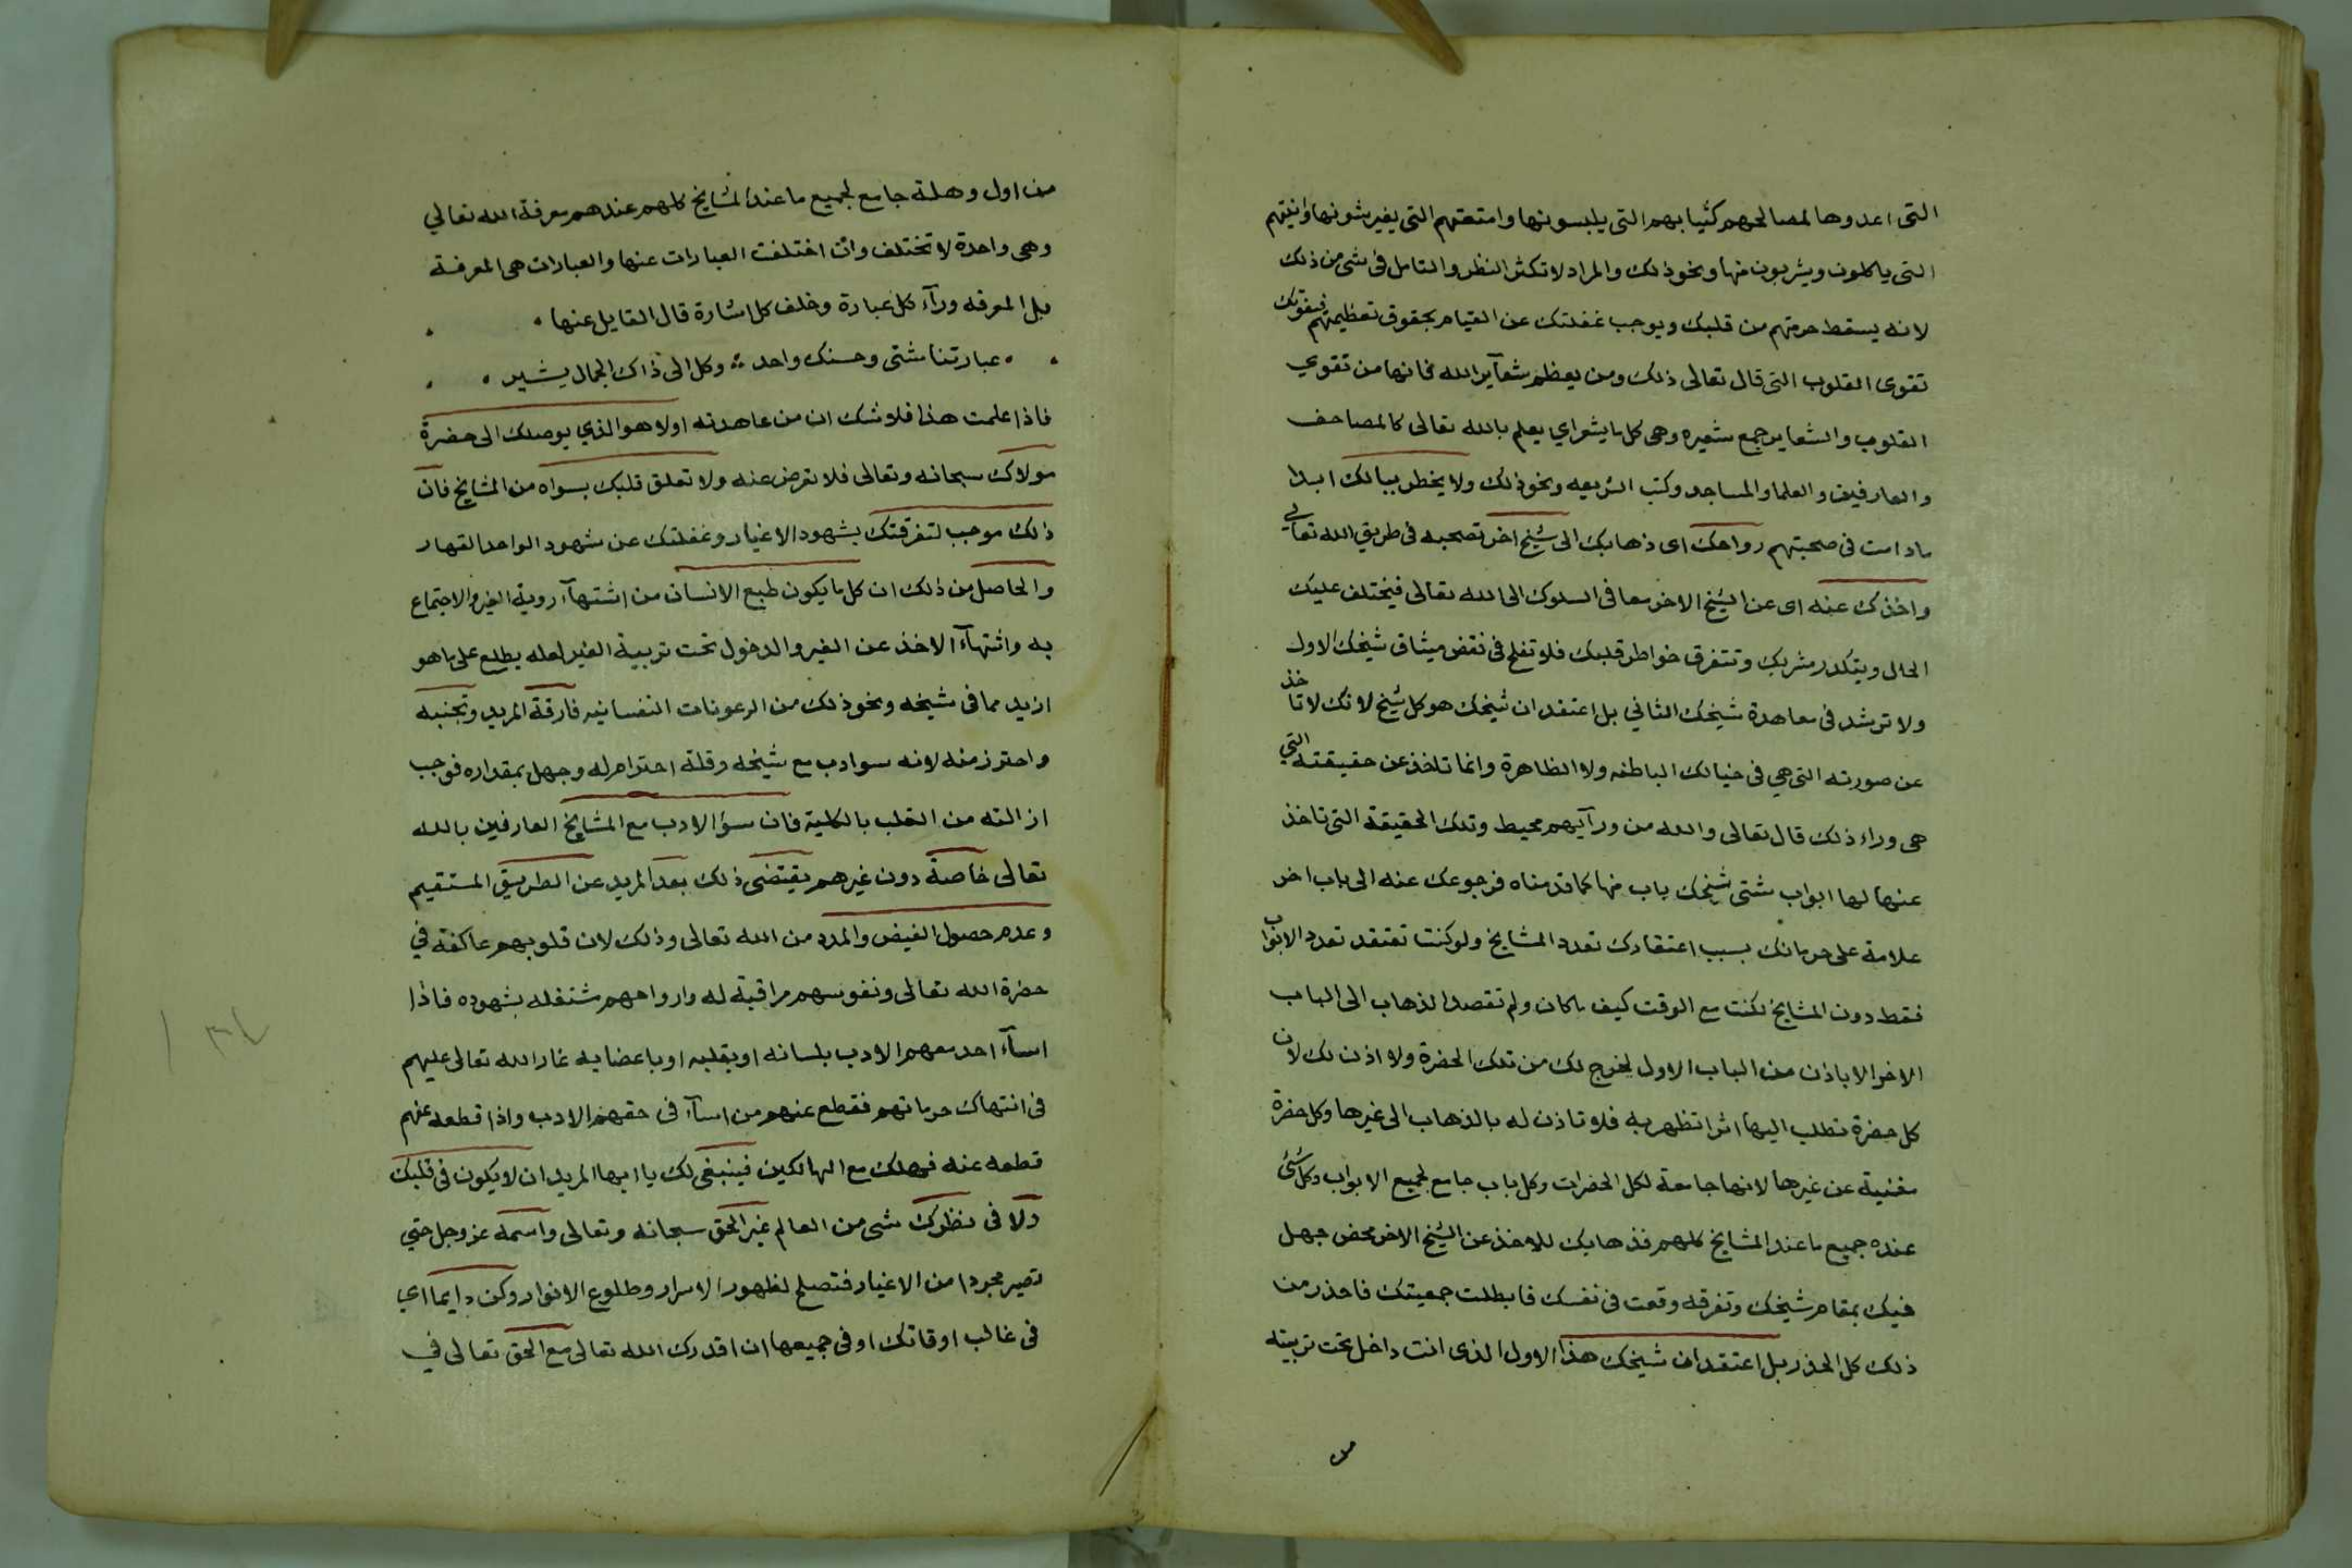 التى اعدوها لمصالحهم كثيابهم التى يلبسونها وامتعتهم التى يفترشونها وانيتهم
التى ياكلون ويشربون منها ونحو ذلك والمراد لا تكثر النظر والتامل فى شى من ذلك
لانه يسقط حرمتهم من قلبك ويوجب غفلتك عن القيام بحقوق تعظيمهم فيفوتك
تقوى القلوب التى قال تعالى ذلك ومن يعظم شعآير الله فانها من تقوي
القلوب والشعاير جمع شعيره وهى كل ما يشعر اي يعلم بالله تعالى كالمصاحف
والعارفين والعلما والمساجد وكتب الشريعه ونحو ذلك ولا يخطر ببالك ابدا
ما دامت فى صحبتهم رواحك اى ذهابك الى شيخ اخر تصحبه فى طريق الله تعالي
واخذك عنه اى عن الشيخ الاخر معا فى السلوك الى الله تعالى فيختلف عليك
الحال ويتكدر مشربك وتتفرق خواطر قلبك فلا تفلح فى نقض ميثاق شيخك الاول
ولا ترشد فى معاهدة شيخك الثاني بل اعتقد ان شيخك هو كل شيخ لانك لا تاخذ
عن صورته التى هي فى خيالك الباطنه ولا الظاهرة وانما تاخذ عن حقيقته التي
هى وراء ذلك قال تعالى والله من ورآيهم محيط وتلك الحقيقة التى تاخذ
عنها لها ابواب شتى شيخك باب منها كما قدمناه فرجوعك عنه الى باب اخر
علامة على حرمانك بسبب اعتقادك تعدد المشايخ ولو كنت تعتقد تعدد الابواب
فقط دون المشايخ لكنت مع الوقت كيف ما كان ولم تقصد الذهاب الى الباب
الاخر الا باذن من الباب الاول يخرج لك من تلك الحضرة ولا اذن لك لان
كل حضرة تطلب اليها اثرا تظهر به فلا تاذن له بالذهاب الى غيرها وكل حضرة
مغنية عن غيرها لانها جامعة لكل الحضرات وكل باب جامع لجميع الابواب وكل شئ
عنده جميع ما عند المشايخ كلهم فذهابك للاخذ عن الشيخ الاخر محض جهل
فيك بمقام شيخك وتفرقه وقعت فى نفسك فابطلت جمعيتك فاحذر من
ذلك كل الحذر بل اعتقد ان شيخك هذا الاول الذى انت داخل تحت تربيته
من
من اول وهلة جامع لجميع ما عند المشايخ كلهم عندهم معرفة الله تعالي
وهى واحدة لا تختلف وان اختلفت العبارات عنها والعبارات هى المعرفة
بل المعرفه ورآء كل عبارة وخلف كل اشارة قال القايل عنها
عبارتنا شتى وحسنك واحد وكل الى ذاك الجمال يشير
فاذا علمت هذا فلا شك ان من عاهدته اولا هو الذي يوصلك الى حضرة
مولاك سبحانه وتعالى فلا تعرض عنه ولا تعلق قلبك بسواه من المشايخ فان
ذلك موجب لتفرقتك بشهود الاغيار وغفلتك عن شهود الواحد القهار
والحاصل من ذلك ان كل ما يكون طبع الانسان من اشتهآء روية الغير والاجتماع
به واشتهآء الاخذ عن الغير والدخول تحت تربية الغير لعله يطلع على ما هو
ازيد مما فى شيخه ونحو ذلك من الرعونات النفسانيه فارقة المريد وتجنبه
واحترز منه لانه سوا ادب مع شيخه وقلة احترام له وجهل بمقداره فوجب
ازالته من القلب بالكلية فان سؤ الادب مع المشايخ العارفين بالله
تعالى خاصة دون غيرهم يقتضى ذلك بعد المريد عن الطريق المستقيم
وعدم حصول الفيض والمدد من الله تعالى وذلك لان قلوبهم عاكفة في
حضرة الله تعالى ونفوسهم مراقبة له وارواحهم مشتغله بشهوده فاذا
اسآء احد معهم الادب بلسانه او بقلبه او باعضايه غار الله تعالى عليهم
فى انتهاك حرماتهم فقطع عنهم من اسآء فى حقهم الادب واذا قطعه عنهم
قطعه عنه فهلك مع الهالكين فينبغى لك يا ايها المريد ان لا يكون فى قلبك
ولا فى نظرك شى من العالم غير الحق سبحانه وتعالى واسمه عز وجل حتي
تصير مجردا من الاغيار فتصلح لظهور الاسرار وطلوع الانوار وكن دايما اي
فى غالب اوقاتك او فى جميعها ان اقدرك الله تعالى مع الحق تعالى في